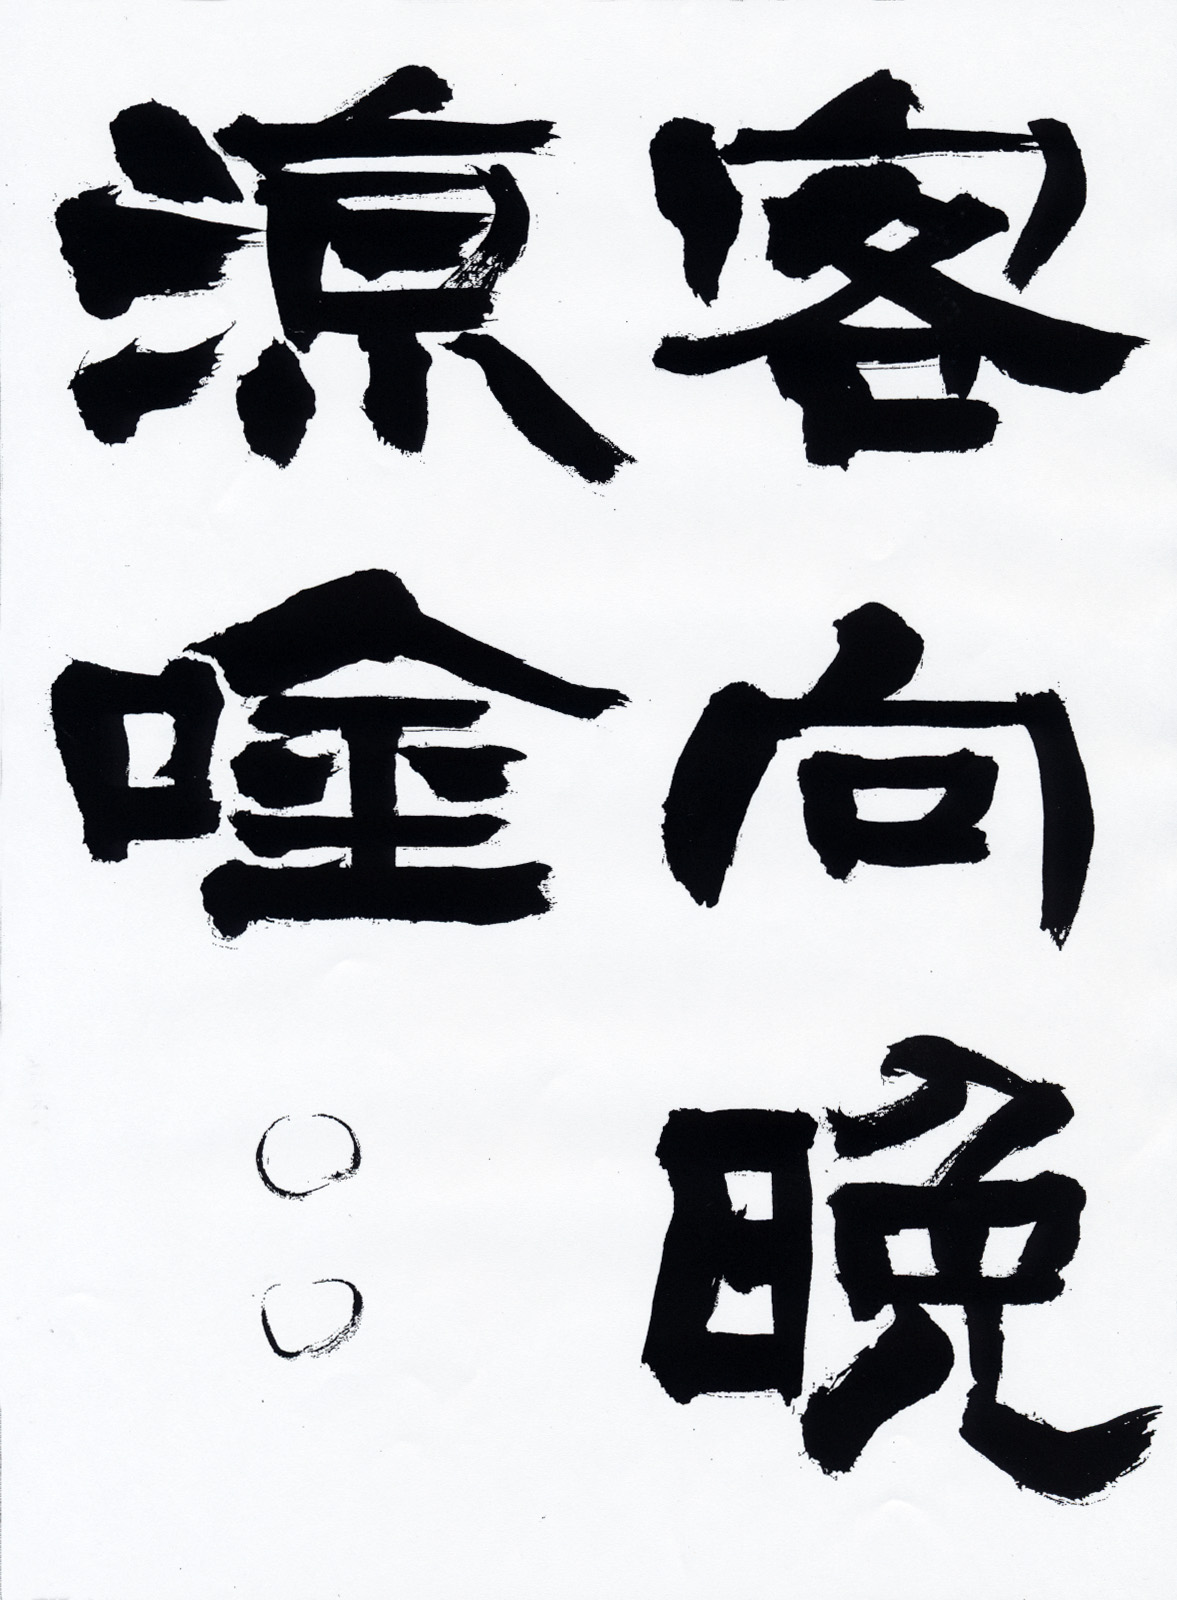 客向晩
涼唫○○